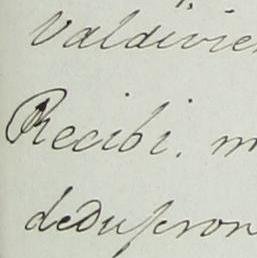 Valdivie
Recibi. m
dedujeron